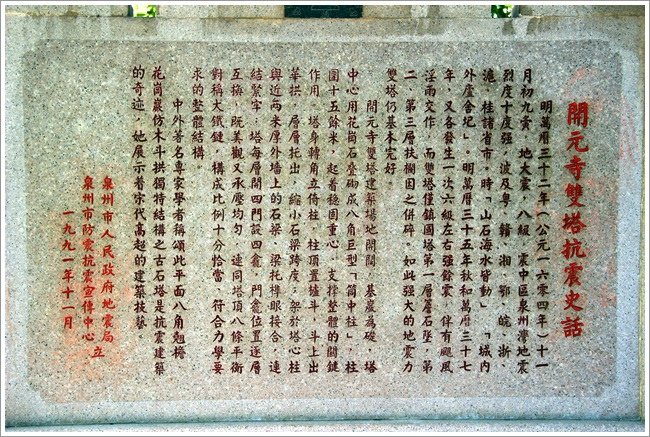 開元寺雙塔抗震史話
明萬曆三十二年(公元一六○四年)十一
月初九震，地大震，八級，震中區泉州灣地震
烈度十度強，波及粵、贛、湘、鄂、皖、浙、
滬、桂諸省市。時「山石海水皆動」，「城內
外廬舍圮」。明萬曆三十五年秋和萬曆三十七
年，又各發生一次六級左右強餘震，伴有颶風
淫雨交作，而雙塔僅鎮國塔第一層蓋石墜，第
二、第三層扶欄因之併碎。如此強大的地震力
雙塔仍基本完好。
開元寺雙塔建築場地開闊，基巖為礎，塔
中心用花崗石疊砌成八角巨型「筒中柱」，柱
圍十五餘米，起着穩固重心、支撐整體的關鍵
作用。塔身轉角立倚柱，柱頂置櫨斗，斗上出
華拱，層層托出，縮小石梁跨度，架於塔心柱
與近兩米厚外墻上的石梁、梁托榫眼接合，連
結緊牢；塔每層開四門設四龕，門龕位置逐層
互換，既美觀又承壓均勻，連同塔頂八條平衡
對稱大鐵鏈，構成比例十分恰當、符合力學要
求的整體結構。
中外著名專家學者稱頌此平面八角翹檐
花崗巖仿木斗拱獨特結構之古石塔是抗震建築
的奇迹，她展示着宋代高超的建築技藝。
泉州市人民政府地震局
泉州市防震抗震宣傳中心
立
一九九一年十一月